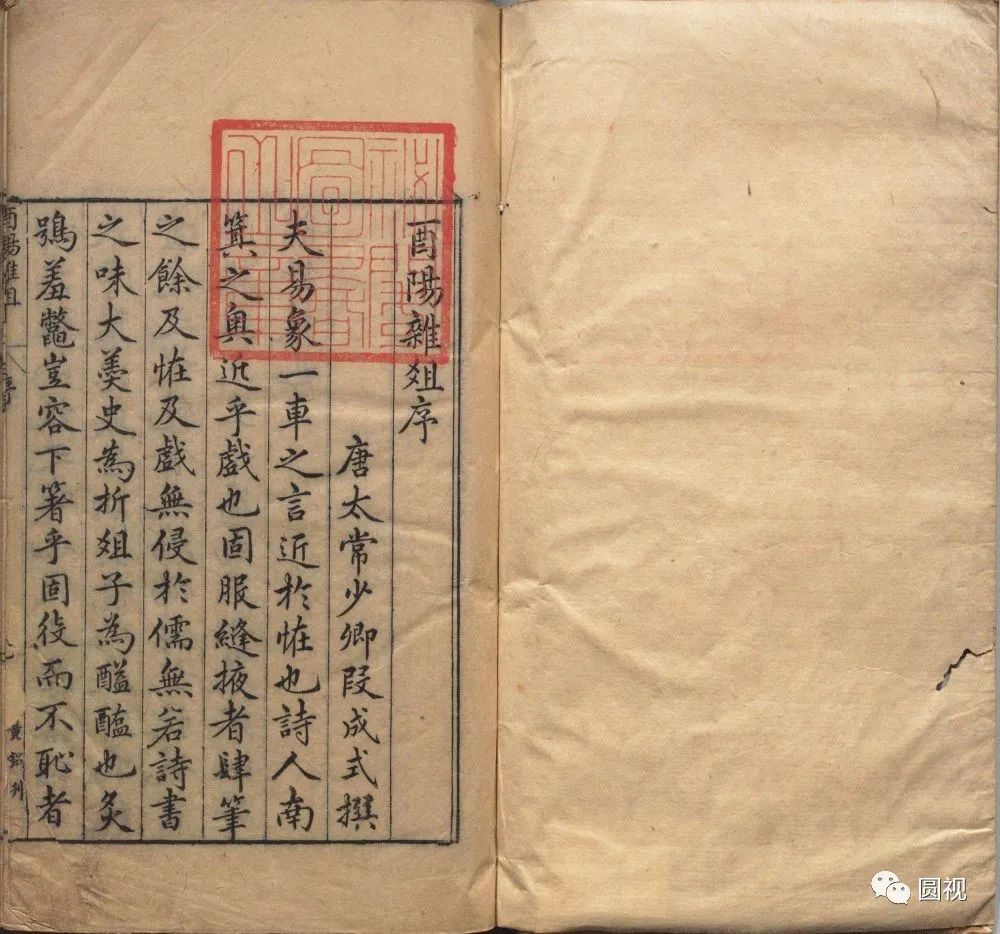 酉陽雜爼序
唐太常少卿段成式撰
夫易象一車之言近於恠也詩人南
箕之奥近乎戲也固服縫掖者肆筆
之餘及恠及戲無侵於儒無若詩書
之味大羮史為折爼子為醯醢也炙
鴞羞鼈豈容下箸乎固役而不恥者
酉陽雜爼
黄鋁刋
圆视